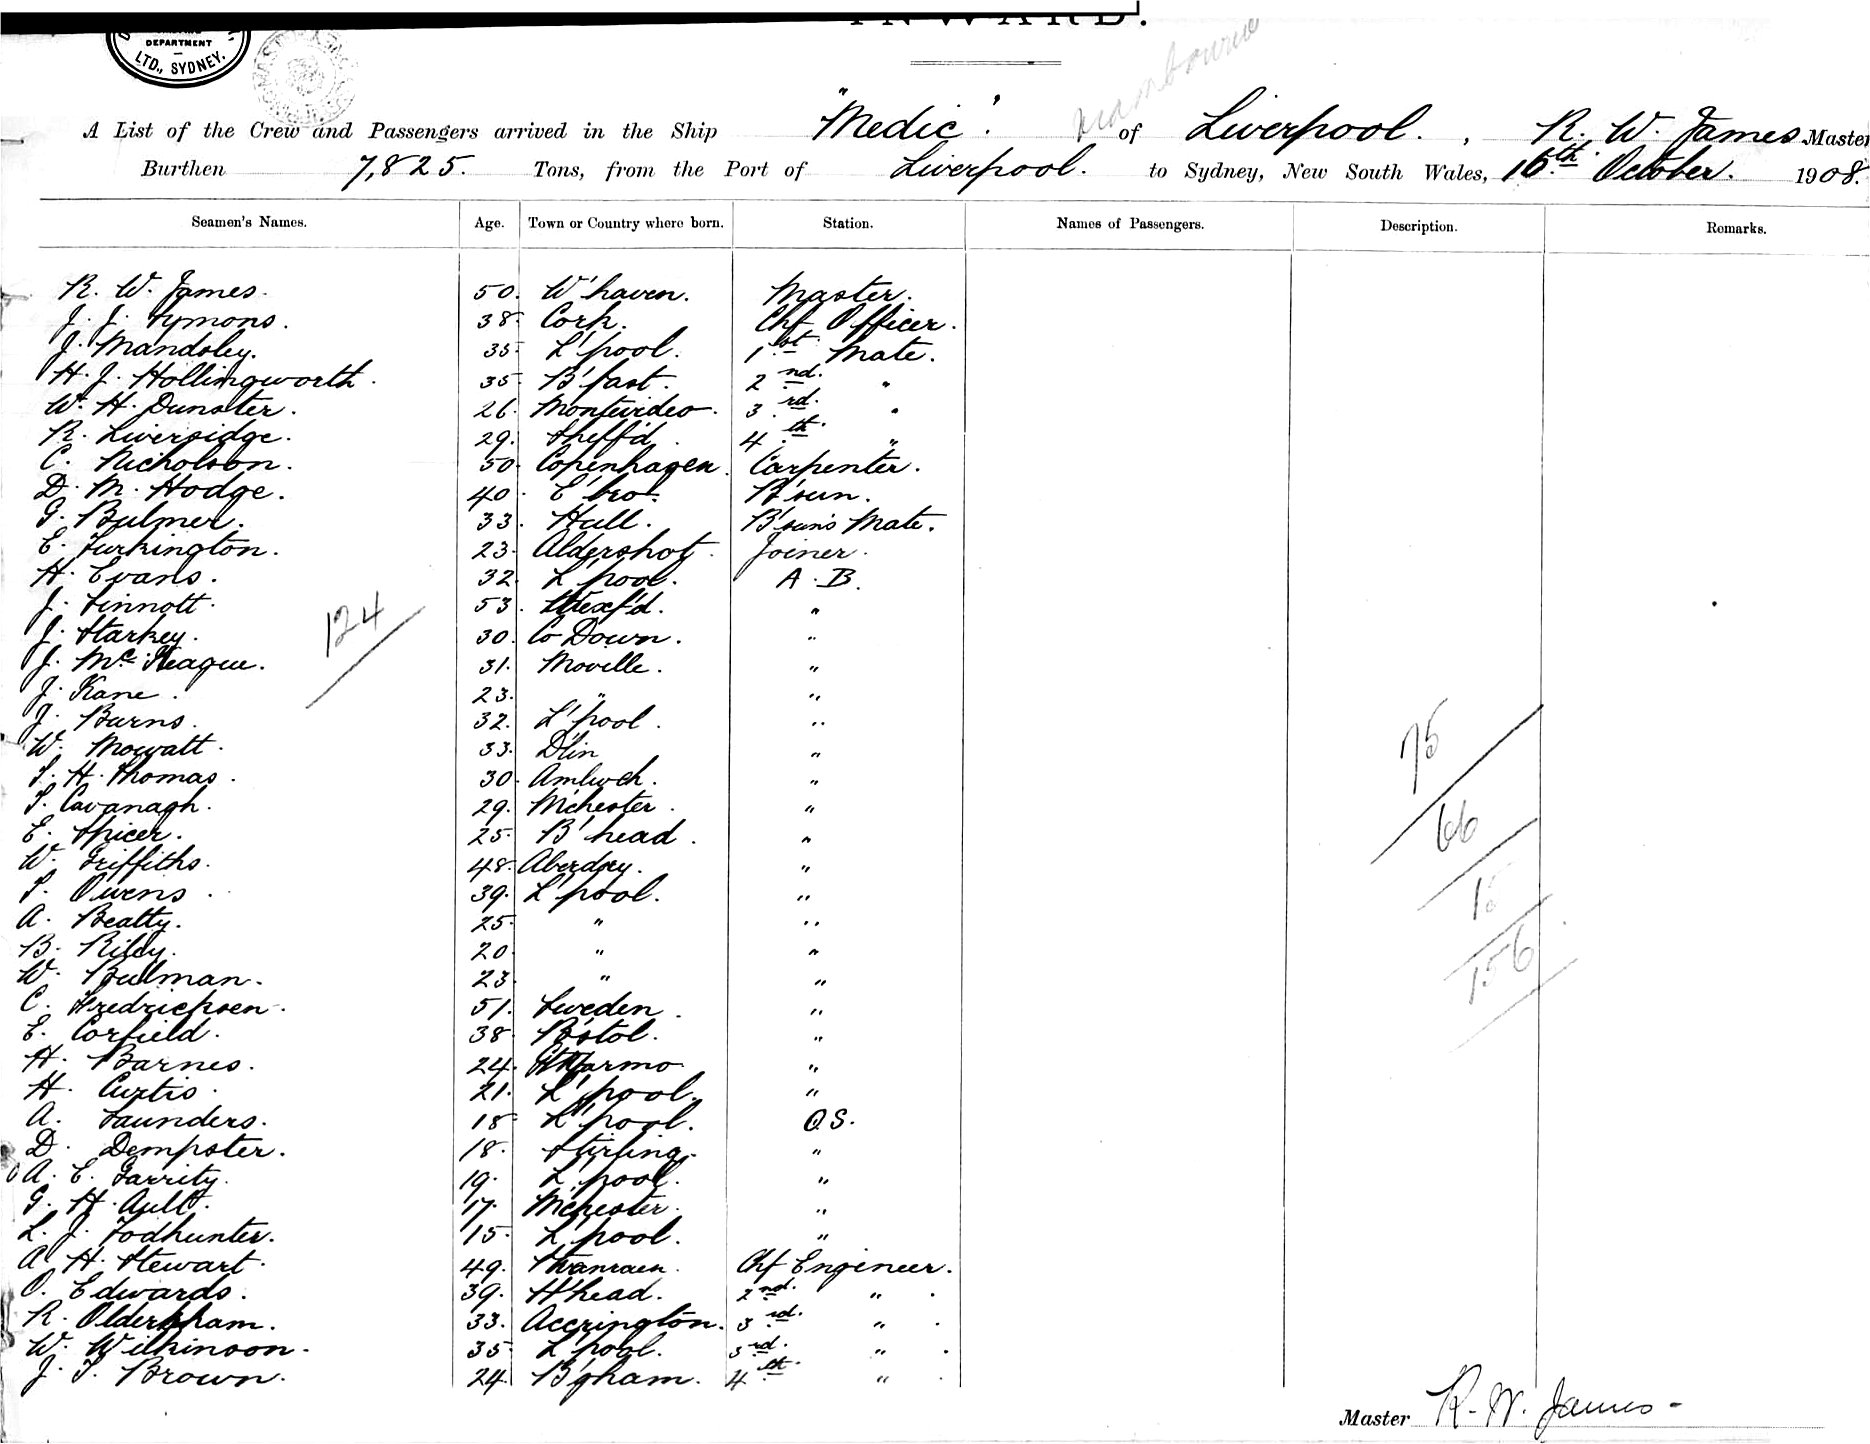 INWARD.
DEPARTMENT
LTD., SYDNEY.
A List of the Crew and Passengers arrived in the Ship "Medic". of Liverpool. , R. W. James Master
Burthen 7,825. Tons, from the Port of Liverpool. to Sydney, New South Wales, 16th October. 1908.
Seamen's Names. Age. Town or Country where born. Station. Names of Passengers. Description. Remarks.
R. W. James. 50. W'haven. Master.
J. J. Symons. 38 Cork. Chf Officer.
J. Mandsley. 35 L'pool. 1st Mate.
H. J. Hollingworth. 35 B'fast. 2nd. "
W. H. Dunster. 26. Montevideo. 3rd. "
R. Liversidge. 29. Sheff'd. 4th. "
C. Nicholson. 50 Copenhagen. Carpenter.
D. M. Hodge. 40. E'bro. B'sun.
G. Bulmer. 33. Hull. B'sun's Mate.
E. Turkington. 23. Aldershot. Joiner.
H. Evans. 32 L'pool. A.B.
J. Sinnott. 53. Wexf'd. "
124
J. Starkey. 30. Co Down. "
J. McKeague. 31. Moville. "
J. Kane. 23. " "
J. Burns. 32. L'pool. "
W. Mowatt. 33. Dlin "
75
S. H. Thomas. 30. Amlwch. "
T. Cavanagh. 29. M'chester. "
E. Spicer. 25. B'head. "
66
W. Griffiths. 48. Aberdrey. "
T. Owens. 39. L'pool. "
15
A. Beatty. 25 " "
B. Riley. 20. " "
156
W. Bulman. 23 " "
C. Fredricksen. 51. Sweden. "
E. Corfield. 38. B'stol. "
H. Barnes. 24. "
H. Curtis. 21. L'pool. "
A. Saunders. 18 L'pool. O.S.
D. Dempster. 18. Stirling. "
A. E. Garrity. 19. L'pool. "
G. H. Ault. 17. M'chester. "
L. J. Todhunter. 15 L'pool. "
A. H. Stewart. 49. Stranraer. Chf Engineer.
O. Edwards. 39. H'head. 2nd. "
R. Oldersham. 33. Accrington. 3rd. "
W. Wilkinson. 35 L'pool. 3rd. "
J. T. Brown. 24. B'gham. 4th. "
Master R. W. James